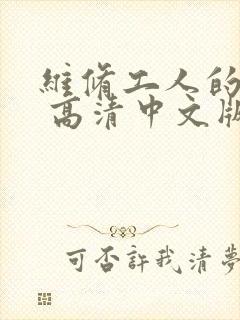 維脩工人的
高清中文版
可否許我清夢